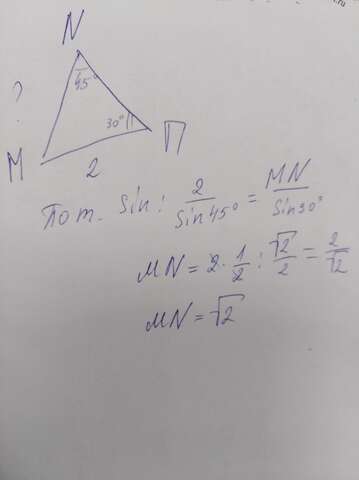 N
45°
?
30°
П
M
2
По т. sin: 2/sin45° = MN/sin30°
MN = 2·1/2 : √2/2 = 2/√2
MN = √2